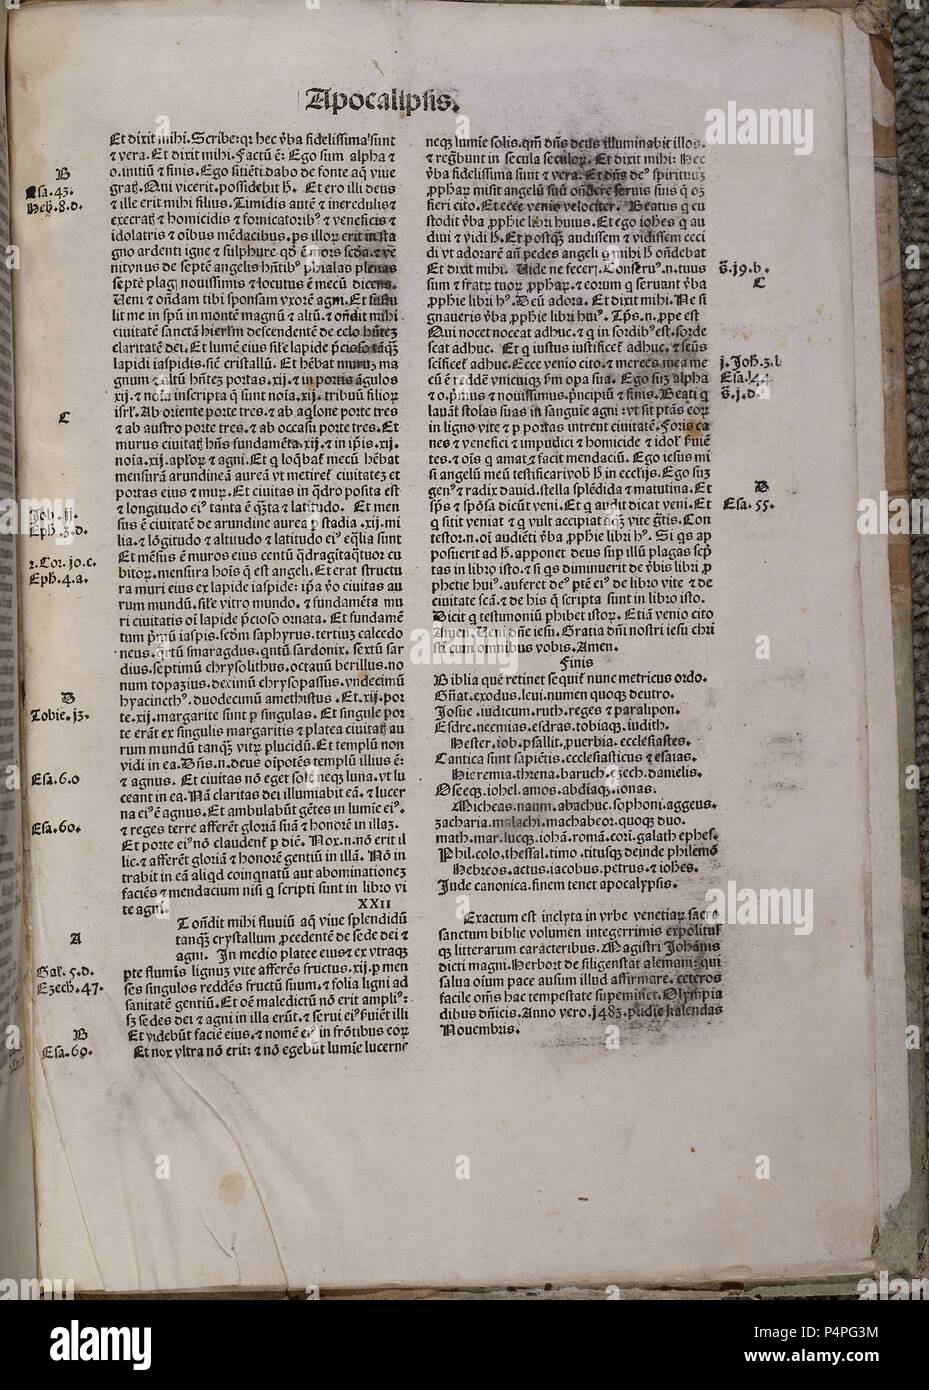 Apocalipsis.
Et dixit mihi. Scribe: qꝫ hec v̄ba fidelissima sunt
⁊ vera. Et dixit mihi. Factū ē: Ego sum alpha ⁊
B
o. initiū ⁊ finis. Ego sitiēti dabo de fonte aq̄ vive
Esa. 43.
grat. Qui vicerit. possidebit h. Et ero illi deus
Heb. 8. d.
⁊ ille erit mihi filius. Timidis autē ⁊ incredulis ⁊
execrat ⁊ homicidis ⁊ fornicatorib⁹ ⁊ veneficis ⁊
idolatris ⁊ oībus mēdacibus. ps illoꝝ erit in sta
gno ardenti igne ⁊ sulphure qd̄ ē mors scd̄a. ⁊ ve
nit vnus de septē angelis hn̄tib⁹ phialas plenas
septē plag nouissimis ⁊ locutus ē mecū dicens.
Ueni ⁊ on̄dam tibi sponsam vxorē agni. Et sustu
lit me in spū in montē magnū ⁊ altū. ⁊ on̄dit mihi
ciuitatē sanctā hierl̄m descendentē de celo hn̄tez
claritatē dei. Et lumē eius sil̄e lapide p̄cioso tāqꝫ
lapidi iaspidis. sic̄ cristallū. Et hēbat muruz ma
gnum ⁊ altū hn̄tez portas. xij. ⁊ in portis āgulos
xij. ⁊ noīa inscripta q̄ sunt noīa. xij. tribuū filioꝝ
C
isrl̄. Ab oriente porte tres. ⁊ ab aq̄lone porte tres
⁊ ab austro porte tres. ⁊ ab occasu porte tres. Et
murus ciuitat hn̄s fundamēta. xij. ⁊ in ip̄is. xij.
noīa. xij. apl̄oꝝ ⁊ agni. Et q̄ loq̄bat mecū hēbat
mensurā arundineā aureā vt metiret ciuitatez et
portas eius ⁊ muꝝ. Et ciuitas in q̄dro posita est
⁊ longitudo ei⁹ tanta ē q̄ta ⁊ latitudo. Et men
Job. ij.
sus ē ciuitatē de arundine aurea p stadia. xij. mi
Eph. 3. d.
lia. ⁊ lōgitudo ⁊ altitudo ⁊ latitudo ei⁹ eq̄lia sunt
2. Cor. jo. c.
Et mēsus ē muros eius centū q̄dragitaq̄tuor cu
Eph. 4. a.
bitoꝝ. mensura hoīs q̄ est angeli. Et erat structu
ra muri eius ex lapide iaspide: ip̄a v̄o ciuitas au
rum mundū. sil̄e vitro mundo. ⁊ fundamēta mu
ri ciuitatis oī lapide p̄cioso ornata. Et fundamē
tum p̄mū iaspis. scd̄m saphyrus. tertiuz calcedo
neus. q̄rtū smaragdus. qn̄tū sardonix. sextū sar
dius. septimū chrysolithus. octauū berillus. no
num topazius. decimū chrysopassus. vndecimū
D
hyacincth⁹. duodecimū amethistus. Et. xij. por
Tobie. j3.
te. xij. margarite sunt p singulas. Et singule por
te erāt ex singulis margaritis ⁊ platea ciuitat au
rum mundū tanqꝫ vitꝝ plucidū. Et templū non
vidi in ea. Dn̄s. n. deus oīpotēs templū illius ē:
Esa. 6.0
⁊ agnus. Et ciuitas nō eget sole neqꝫ luna. vt lu
ceant in ea. Nā claritas dei illumiabit eā. ⁊ lucer
na ei⁹ ē agnus. Et ambulabūt gētes in lumie ei⁹.
Esa. 60.
⁊ reges terre afferēt gloriā suā ⁊ honorē in illaz.
Et porte ei⁹ nō claudent p diē. Nox. n. nō erit il
lic. ⁊ afferēt gloriā ⁊ honorē gentiū in illā. Nō in
trabit in eā aliqd coinqnatū aut abominationez
faciēs ⁊ mendacium nisi q̄ scripti sunt in libro vi
te agni. XXII
T ondit mihi fluuiū aq̄ viue splendidū
A
tanqꝫ crystallum p̄cedentē de sede dei ⁊
agni. In medio platee eius ⁊ ex vtraqꝫ
Gal. 5. d.
pte flumīs lignuz vite afferēs fructus. xij. p men
Ezech. 47.
ses singulos reddēs fructū suum. ⁊ folia ligni ad
sanitatē gentiū. Et oē maledictū nō erit ampli⁹:
sꝫ sedes dei ⁊ agni in illa erūt. ⁊ serui ei⁹ ẜuient illi
B
Et videbūt faciē eius. ⁊ nomē ei⁹ in frōtibus eoꝝ
Esa. 60.
Et nox vltra nō erit: ⁊ nō egebūt lumīe lucerne
neqꝫ lumīe solis. qm̄ dn̄s deus illuminabit illos.
⁊ regn̄bunt in secula seculoꝝ. Et dixit mihi: Hec
v̄ba fidelissima sunt ⁊ vera. Et dn̄s de⁹ spirituuz
p̄phaꝝ misit angelū suū on̄dere seruis suis q̄ oꝫ
fieri cito. Et ecce venio velociter. Beatus q̄ cu
stodit v̄ba p̄phie libri huius. Et ego ioh̄es q̄ au
diui ⁊ vidi h. Et postqꝫ audissem ⁊ vidissem ceci
di vt adorarē an̄ pedes angeli q̄ mihi h on̄debat
Et dixit mihi. Uide ne fecer. Conseru⁹. n. tuus
g. j9. b.
sum ⁊ fratꝝ tuoꝝ p̄phaꝝ. ⁊ eorum q̄ seruant v̄ba
C
p̄phie libri h⁹. Deū adora. Et dixit mihi. Ne si
gnaueris v̄ba p̄phie libri hui⁹. Tp̄s. n. p̄pe est
Qui nocet noceat adhuc. ⁊ q̄ in sordib⁹ est. sorde
scat adhuc. Et q̄ iustus iustificet adhuc. ⁊ scūs
j. Joh. 3. b
scificet adhuc. Ecce venio cito. ⁊ merces mea me
Esa. 44.
cū ē reddē vnicuiqꝫ ẜm opa sua. Ego suꝫ alpha
g. j. d.
⁊ o. p̄mus ⁊ nouissimus. p̄ncipiū ⁊ finis. Beati q̄
lauāt stolas suas in sanguīe agni: vt sit ptās eoꝝ
in ligno vite ⁊ p portas intrent ciuitatē. Foris ca
nes ⁊ venefici ⁊ impudici ⁊ homicide ⁊ idol ẜuiē
tes. ⁊ oīs q̄ amat ⁊ facit mendaciū. Ego iesus mi
si angelū meū testificari vob h in eccl̄ijs. Ego suꝫ
gen⁹ ⁊ radix dauid. stella splēdida ⁊ matutina. Et
D
sp̄s ⁊ spōsa dicūt veni. Et q̄ audit dicat veni. Et
Esa. 55.
q̄ sitit veniat ⁊ q̄ vult accipiat aqꝫ vite gr̄tis. Con
testor. n. oī audiēti v̄ba p̄phie libri h⁹: Si qs ap
posuerit ad h. apponet deus sup illū plagas scp̄
tas in libro isto. ⁊ si qs diminuerit de v̄bis libri p̄
phetie hui⁹. auferet de⁹ ptē ei⁹ de libro vite ⁊ de
ciuitate scā. ⁊ de his q̄ scripta sunt in libro isto.
Dicit q̄ testimoniū phibet istoꝝ. Etiā venio cito
Amen. Ueni dn̄e iesu. Gratia dn̄i nostri iesu chri
sti cum omnibus vobis. Amen.
Finis
Biblia quē retinet sequit nunc metricus ordo.
Gn̄at. exodus. leui. numen quoqꝫ deutro.
Josue. iudicum. ruth. reges ⁊ paralipon.
Esdre. neemias. esdras. tobiaqꝫ. iudith.
Hester. iob. psallit. puerbia. ecclesiastes.
Cantica sunt sapiētis. ecclesiasticus ⁊ esaias.
Hieremia. threna. baruch. ezech. danielis.
Oseeqꝫ. iohel. amos. abdiaqꝫ. ionas.
Micheas. naum. abachuc. sophoni. aggeus.
zacharia. malachi. machabeor. quoqꝫ duo.
math. mar. lucqꝫ. iohā. romā. cori. galath ephes.
Phil. colo. thessal. timo. titusqꝫ deinde philemō
Hebreos. actus. iacobus. petrus. ⁊ ioh̄es.
Jude canonica. finem tenet apocalypsis.
Exactum est inclyta in vrbe venetiaꝝ sacro
sanctum biblie volumen integerrimis expolitisqꝫ
qꝫ litterarum caracteribus. Magistri Johānis
dicti magni. Herbort de siligenstat alemani: qui
salua oium pace ausim illud affirmare. ceteros
facile om̄s hac tempestate supeminet. Olympia
dibus dn̄icis. Anno vero. j483. pridie kalendas
Novembris.
alamy
Image ID: P4PG3M
www.alamy.com